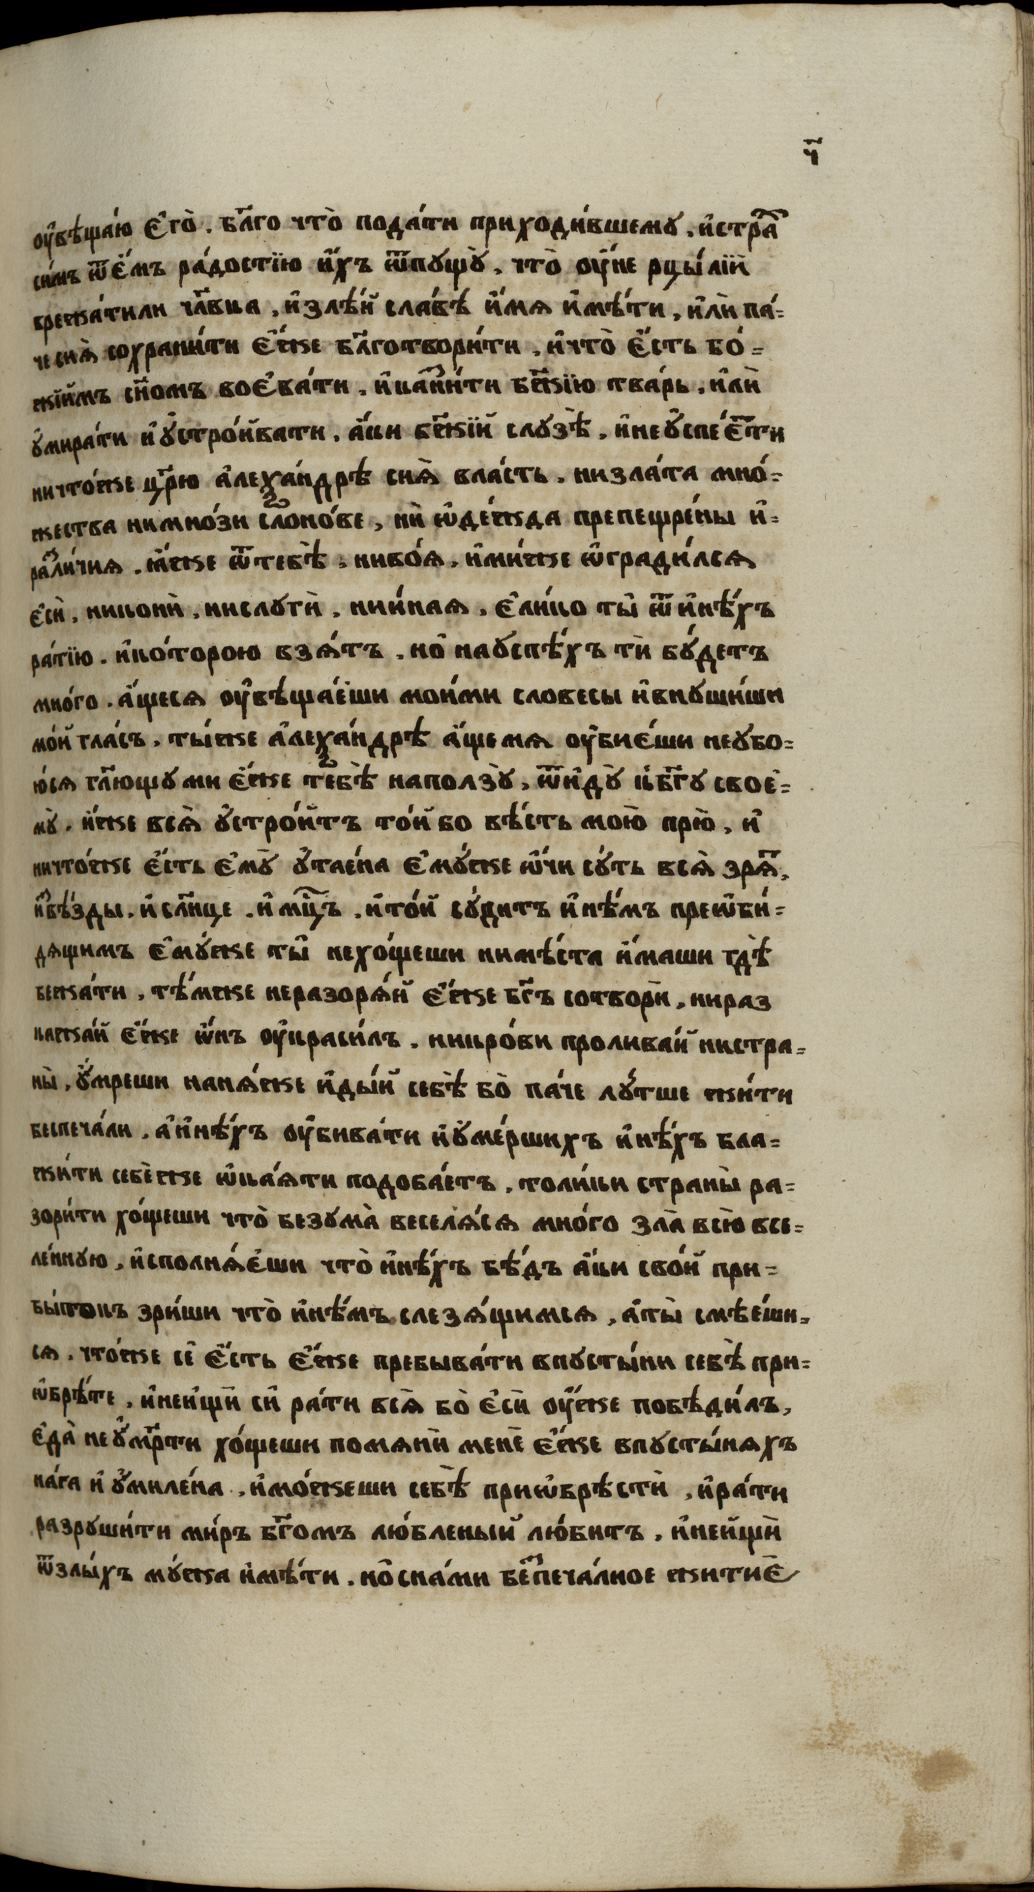 ч҃
оувѣщаю єго̀. бл҃го что̀ пода́ти приходи́вшему, и҆стра
си́мъ ѿє́мъ ра́достїю и҆́хъ ѿпущꙋ̀, что̀ оу҆не рцы́ лїй
врежа́тили чл҃вка, и҆злѣ́й сла́вѣ и҆́мя и҆мѣ́ти, и҆лѝ па́-
че сиѧ̀ сохрани́ти є҆́же бл҃готвори́ти, и҆что̀ є҆́сть бо́-
жїимъ сн҃омъ воєва́ти, и҆каꙁни́ти бж҃їю тва́рь, и҆лѝ
у҆мира́ти и҆у҆стро́ивати, а҆́ки бж҃їй слузѣ̀, и҆неу҆спѣ́єти
ничто́же цр҃ю а҆леѯа́ндрѣ сиѧ̀ вла́сть, низла́та мно́-
жества нимно́зи сл҃оно́ве, нѝ ѡ҆де́жда препещре́ны и҆-
разли́чия. ꙗ҆́же ѿтебѣ̀, нивоѧ̀, и҆ми́же ѡ҆гради́лся
є҆сѝ, никонѝ, нислугѝ, нии́ная, є҆ли́ко ты̀ ѿи҆нѣ́хъ
ра́тїю. и҆ко́торою взѧ́тъ. но̀ науспѣ́хъ тѝ бу́детъ
мно́го. а҆́щеся оу҆вѣща́єши мои́ми словесы и҆внуши́ши
мо́й гла́съ, ты́же а҆леѯа́ндрѣ а҆́ще мя оу҆биє́ши неубо-
ю́ся гл҃ющу ми є҆́же тебѣ̀ наползꙋ̀, ѿи҆дꙋ̀ къ бг҃у своє҆-
мꙋ̀. и҆́же всѧ̀ у҆стро́итъ то́й бо вѣ́сть мою̀ прю̀, и҆
ничто́же є҆́сть є҆мꙋ̀ у҆тае́на є҆му́же ѡ҆́чи су́ть всѧ̀ зрѧ,
и҆ѕвѣ́зды. и҆сл҃нце. и҆мц҃ъ. и҆то́й су́дитъ и҆нѣ́мъ преѡ҆би́-
дящимъ є҆му́же ты̀ нехо́щеши нимѣ́ста и҆́маши гдѣ̀
бежа́ти, тѣ́мже неразорѧ́й є҆́же бг҃ъ сотворѝ, нираз
нажа́й є҆́же ѡ҆́нъ оу҆краси́лъ. никро́ви пролива́й нистра-
ны̀, у҆́мреши нанѧ́же и҆ды́й себѣ̀ бо̀ па́че лу́тше жи́ти
беспеча́ли, а҆и҆нѣ́хъ оу҆бива́ти и҆у҆ме́ршихъ и҆нѣ́хъ бла-
жи́ти себѐже ѡ҆каѧ́ти подоба́етъ, толи́ки страны̀ ра-
зори́ти хо́щеши что̀ безума̀ веселѧ́ся мно́го зла̀ всю̀ все-
ле́нную, и҆сполнѧ́єши что̀ и҆нѣ́хъ бѣ́дъ а҆́ки сво́й при-
бы́токъ зри́ши что̀ и҆нѣ́мъ слезѧ́щимся, а҆ты̀ смѣе́ши-
ся. что́же сѐ є҆́сть є҆́же пребыва́ти впусты́ни себѣ̀ при-
ѡ҆брѣ́те, и҆неи҆щѝ сѝ ра́ти всѧ̀ бо̀ є҆сѝ оу҆́же побѣди́лъ,
є҆да̀ неу҆мр҃ти хо́щеши помянѝ менѐ є҆́же впусты́няхъ
на́га и҆ у҆миле́на, и҆мо́жеши себѣ̀ приѡ҆брѣ́стѝ, и҆ра́ти
разруши́ти ми́ръ бг҃омъ лю́бленый лю́битъ, и҆неищѝ
ѿзлы́хъ му́жа и҆мѣ́ти. но̀ снами беспеча́лное житиє̀